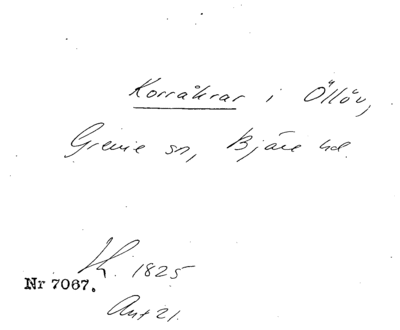 Korråkrar i Öllöv,
Grevie sn, Bjäre hd.
Sk. 1825
Nr 7067.
Ant 21.